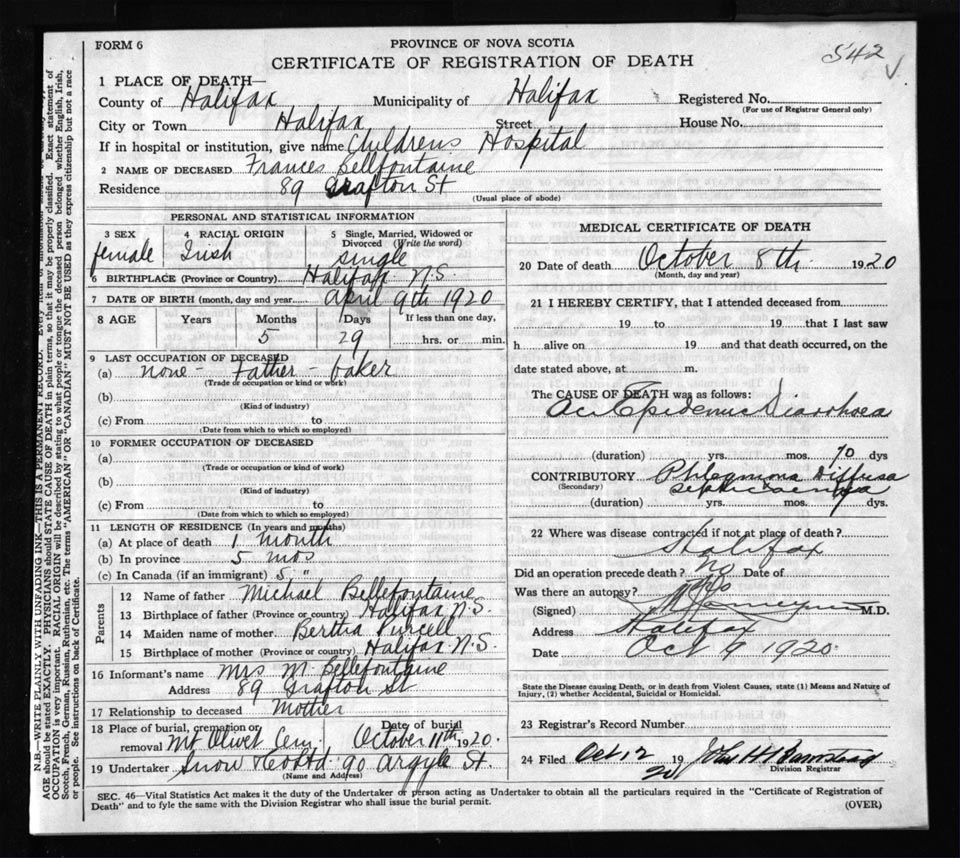 FORM 6
PROVINCE OF NOVA SCOTIA
CERTIFICATE OF REGISTRATION OF DEATH
542
1 PLACE OF DEATH—
County of Halifax Municipality of Halifax Registered No.
(For use of Registrar General only)
City or Town Halifax Street House No.
If in hospital or institution, give name Childrens Hospital
2 NAME OF DECEASED Frances Bellfontaine
Residence 89 Grafton St
(Usual place of abode)
PERSONAL AND STATISTICAL INFORMATION
3 SEX 4 RACIAL ORIGIN 5 Single, Married, Widowed or
Divorced (Write the word)
female Irish single
6 BIRTHPLACE (Province or Country) Halifax N.S.
7 DATE OF BIRTH (month, day and year) April 9th 1920
8 AGE Years Months Days If less than one day,
5 29 hrs. or min.
9 LAST OCCUPATION OF DECEASED
(a) none - Father - baker
(Trade or occupation or kind of work)
(b)
(Kind of industry)
(c) From to
(Date from which to which so employed)
10 FORMER OCCUPATION OF DECEASED
(a)
(Trade or occupation or kind of work)
(b)
(Kind of industry)
(c) From to
(Date from which to which so employed)
11 LENGTH OF RESIDENCE (In years and months)
(a) At place of death 1 month
(b) In province 5 mos
(c) In Canada (if an immigrant) 5 "
Parents
12 Name of father Michael Bellefontaine
13 Birthplace of father (Province or country) Halifax N.S.
14 Maiden name of mother Bertha Purcell
15 Birthplace of mother (Province or country) Halifax N.S.
16 Informant's name Mrs M. Bellefontaine
Address 89 Grafton St
17 Relationship to deceased Mother
18 Place of burial, cremation or removal Mt Olivet Cem. Date of burial October 11th 1920.
19 Undertaker Snow & Co Ltd 90 Argyle St.
(Name and Address)
MEDICAL CERTIFICATE OF DEATH
20 Date of death October 8th 1920
(Month, day and year)
21 I HEREBY CERTIFY, that I attended deceased from
19 to 19 that I last saw
h alive on 19 and that death occurred, on the
date stated above, at m.
The CAUSE OF DEATH was as follows:
Epidemic Diarrhoea
(duration) yrs. mos. 10 dys
CONTRIBUTORY Diffusa
(Secondary) septicaemia
(duration) yrs. mos. 7 dys.
22 Where was disease contracted if not at place of death?
Halifax
Did an operation precede death? no Date of
Was there an autopsy? no
(Signed) M.D.
Address Halifax
Date Oct 9 1920
State the Disease causing Death, or in death from Violent Causes, state (1) Means and Nature of
Injury, (2) whether Accidental, Suicidal or Homicidal.
23 Registrar's Record Number
24 Filed Oct 12 1920 John H Barnstead
Division Registrar
SEC. 46—Vital Statistics Act makes it the duty of the Undertaker or person acting as Undertaker to obtain all the particulars required in the "Certificate of Registration of
Death" and to fyle the same with the Division Registrar who shall issue the burial permit.
(OVER)
N.B.—WRITE PLAINLY WITH UNFADING INK—THIS IS A PERMANENT RECORD.
AGE should be stated EXACTLY. PHYSICIANS should STATE CAUSE OF DEATH in plain terms, so that it may be properly classified. Exact statement of
OCCUPATION is very important. RACIAL ORIGIN will be described by stating to what people or tongue the deceased person belonged whether English, Irish,
Scotch, French, German, Russian, Ruthenian, etc. The terms "AMERICAN" or "CANADIAN" MUST NOT BE USED as they express citizenship but not a race
or people. See instructions on back of Certificate.